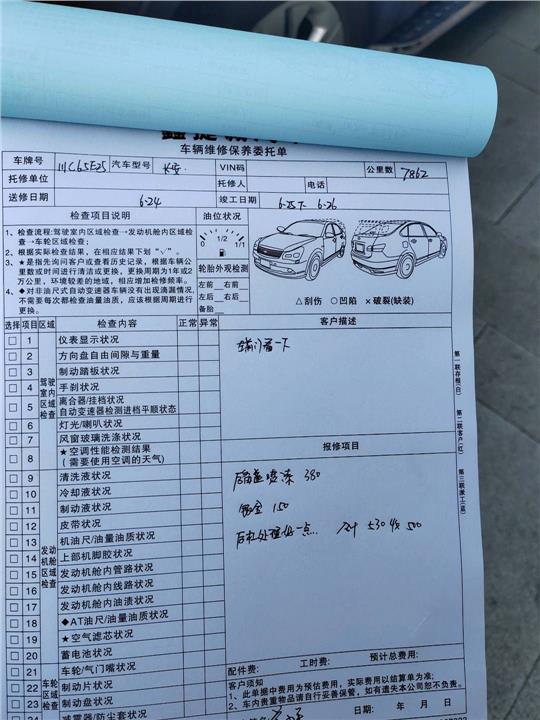 车辆维修保养委托单
车牌号 川C65E25 汽车型号 长安 VIN码 公里数 7862
托修单位 托修人 电话
送修日期 6-24 竣工日期 6-25下 6-26
检查项目说明
1、检查流程:驾驶室内区域检查→发动机舱内区域检查→车轮区域检查;
2、根据实际检查结果,在相应结果下划“√”。
3、★是指先询问客户或查看历史记录,根据车辆公里数或时间进行清洁或更换,更换周期为1年或2万公里,环境较差的地域,相应增加检修频率。
4、◆对非油尺式自动变速器车辆没有出现滴漏情况,不需要每次都检查油量油质,应该根据周期进行更换。
油位状况
0 1/2 1/1
轮胎外观检测
左前 右前
左后 右后
备胎
△刮伤 ○凹陷 ×破裂(缺装)
选择 项目 区域 检查内容 正常 异常
驾驶室内区域检查
1 仪表显示状况
2 方向盘自由间隙与重量
3 制动踏板状况
4 手刹状况
5 离合器/挂档状况
自动变速器检测进档平顺状态
6 灯光/喇叭状况
7 风窗玻璃洗涤状况
8 ★空调性能检测结果
(需要使用空调的天气)
发动机舱区域检查
9 清洗液状况
10 冷却液状况
11 制动液状况
12 皮带状况
13 机油尺/油量油质状况
14 上部机脚胶状况
15 发动机舱内管路状况
16 发动机舱内线路状况
17 发动机舱内油渍状况
18 ◆AT油尺/油量油质状况
19 ★空气滤芯状况
20 蓄电池状况
车轮区域检查
21 车轮/气门嘴状况
22 制动片状况
23 制动盘状况
减震器/防尘套状况
客户描述
报修项目
380
钣金 150
500
配件费: 工时费: 预计总费用:
客户须知
1、此单据中费用为预估费用,实际费用以结算单为准;
2、车内贵重物品请自行妥善保管,如有遗失本公司恕不负责。
日期: 年 月 日
第一联存根(白)
第二联客户(红)
第三联派工(蓝)